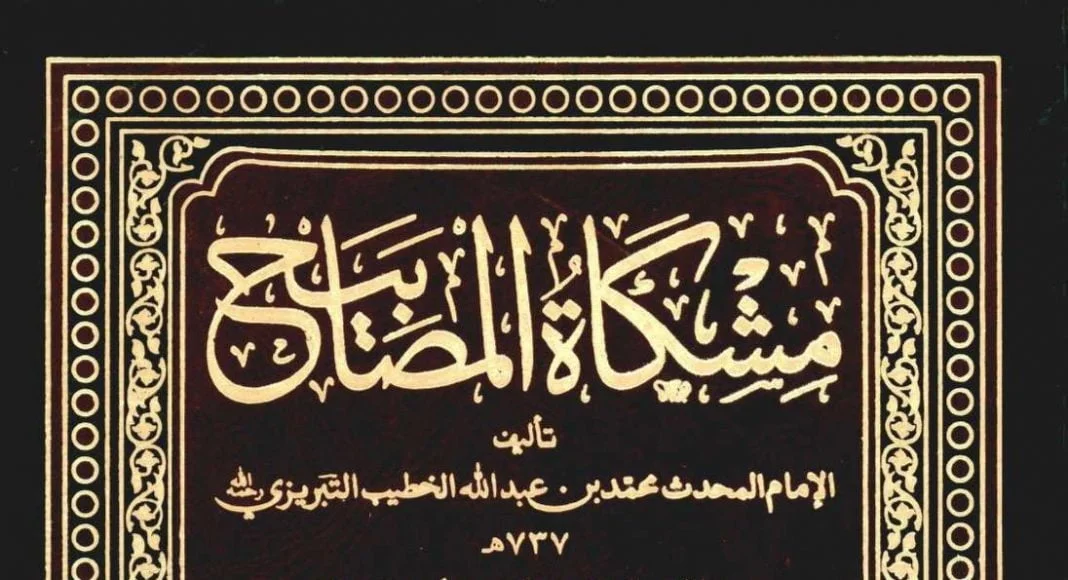 مشكاة المصابيح
تأليف
الإمام المحدث محمد بن عبد الله الخطيب التبريزي رحمه الله
٧٣٧هـ